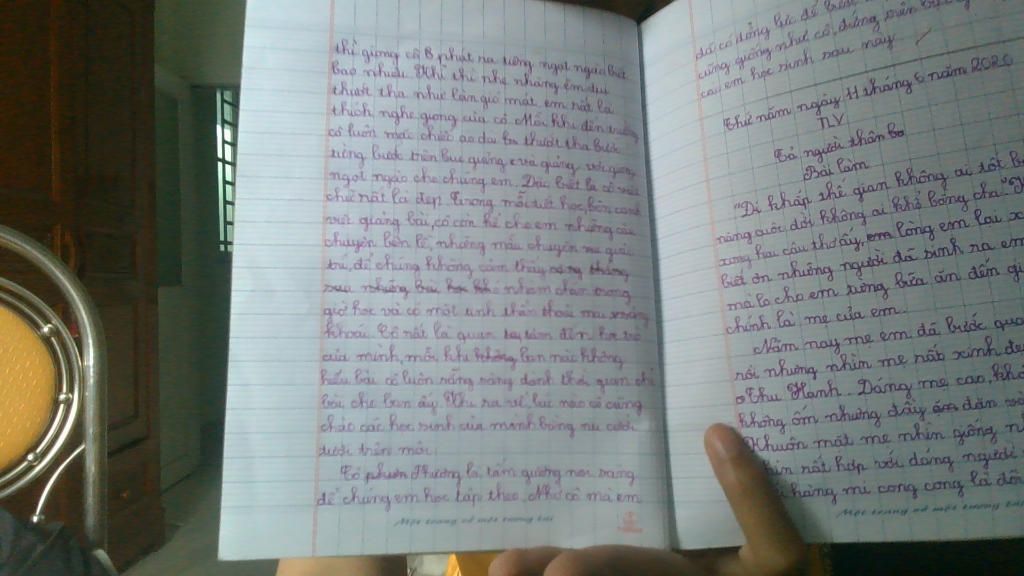 thì giọng cô B phát ra tiếng ngọt ngào biết
bao nhiêu. Khi thì nhẹ nhàng êm dịu
thướt tha như làn gió mát, em rất là
thích nghe giọng của cô. Mỗi khi đến trường
cô luôn mặc chiếc áo dài thướt tha bước
từng bước trên bục giảng và giảng với giọng
ngọt ngào cho chúng em. Đặc biệt là cô viết
chữ rất là đẹp. Trong mỗi tiết học, bên cạnh
việc giảng bài, cô còn kể cho em những câu
chuyện bên lề, những mẩu chuyện vui giải
trí, để chúng không cảm thấy
sau nhàm chán trong
giờ học và có một tinh thần thoải mái
khoái. Cô rất là quan tâm đến học trò
của mình, mỗi khi bạn nào không
hiểu bài cô luôn sẵn sàng dành thời gian chỉ
bài cho bạn ấy. Khi ra về, lúc nào cô cũng
chào các học sinh của mình bằng nụ cười
dưới trên môi.
Cô Phương là tấm gương noi sáng
để chúng em học tập theo. Nhờ cô mà em
Một trang vở một tương lai
đã có động lực để
cũng giống như cô, đứng trên
của em học sinh sau này
Thứ năm ngày 11 tháng 6 năm 2020
TLV
Tả người thân
Bài làm
"Đi khắp thế gian không ai tốt b
nặng cuộc đời không ai khổ bằng cha"
xong hai câu thơ ấy, em lòng em lại x
biết ơn những người đã sinh ra em
mà lo cho em từng bữa ăn đến gi
chính là mẹ của em.
Năm nay mẹ em đã bước qua
rồi nhưng nhìn mẹ rất xinh đẹ
Thu Hạnh. Dáng mẹ cao, khô
không ốm nhưng đầy
Khuôn mặt mẹ nhìn giống
nhìn rất hợp với dáng người
hàng mi cong cong là đôi
Một trang vở một tương lai